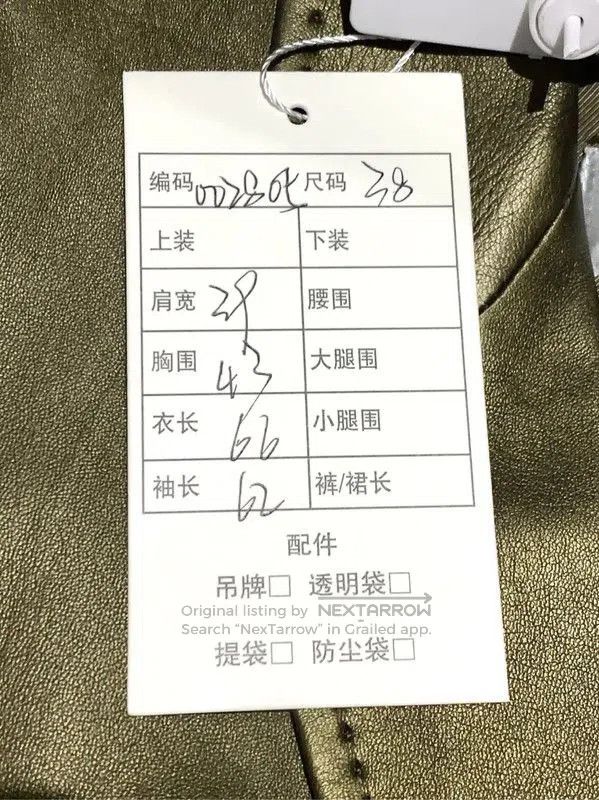 编码 尺码 38
上装 下装
肩宽 39 腰围
胸围 43 大腿围
衣长 66 小腿围
袖长 62 裤/裙长
配件
吊牌□ 透明袋□
Original listing by NEXTARROW
Search "NexTarrow" in Grailed app.
提袋□ 防尘袋□